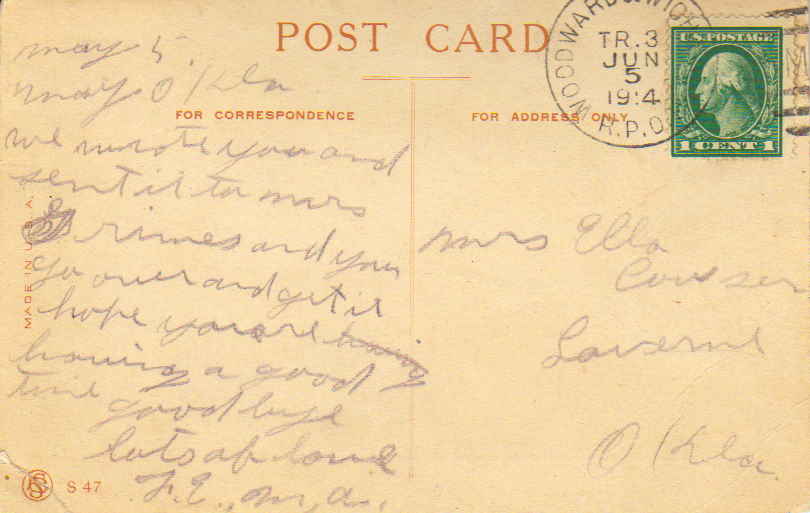 POST CARD
may 5.
may Okla
FOR CORRESPONDENCE
we wrote you and
sent it to mars
Grimes and you
go over and get it
hope you are having
having a good
time
good bye
lots of love
F. E., M, A.,
MADE IN U.S.A.
S 47
FOR ADDRESS ONLY
WOODWARD & WICH
TR.3
JUN
5
1914
R.P.O.
U.S. POSTAGE
1 CENT 1
Mrs Ella
Couser
Laverne
Okla.